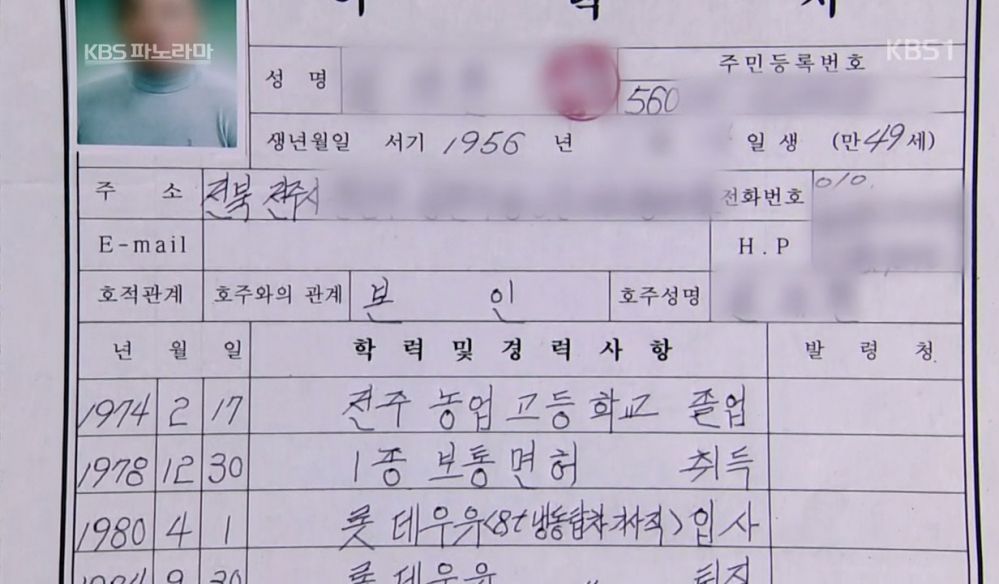 이 력 서
KBS 파노라마
KBS1
성 명
주민등록번호
560
생년월일 서기 1956 년 일 생 (만 49 세)
주 소 전북 전주시 전화번호 010.
E-mail H.P
호적관계 호주와의 관계 본 인 호주성명
년 월 일 학 력 및 경 력 사 항 발 령 청
1974 2 17 전주 농업 고등 학교 졸업
1978 12 30 1종 보통 면허 취득
1980 4 1 롯데우유(8t 냉동탑차 기사직) 입사
1984 9 20 롯데우유 〃 퇴직